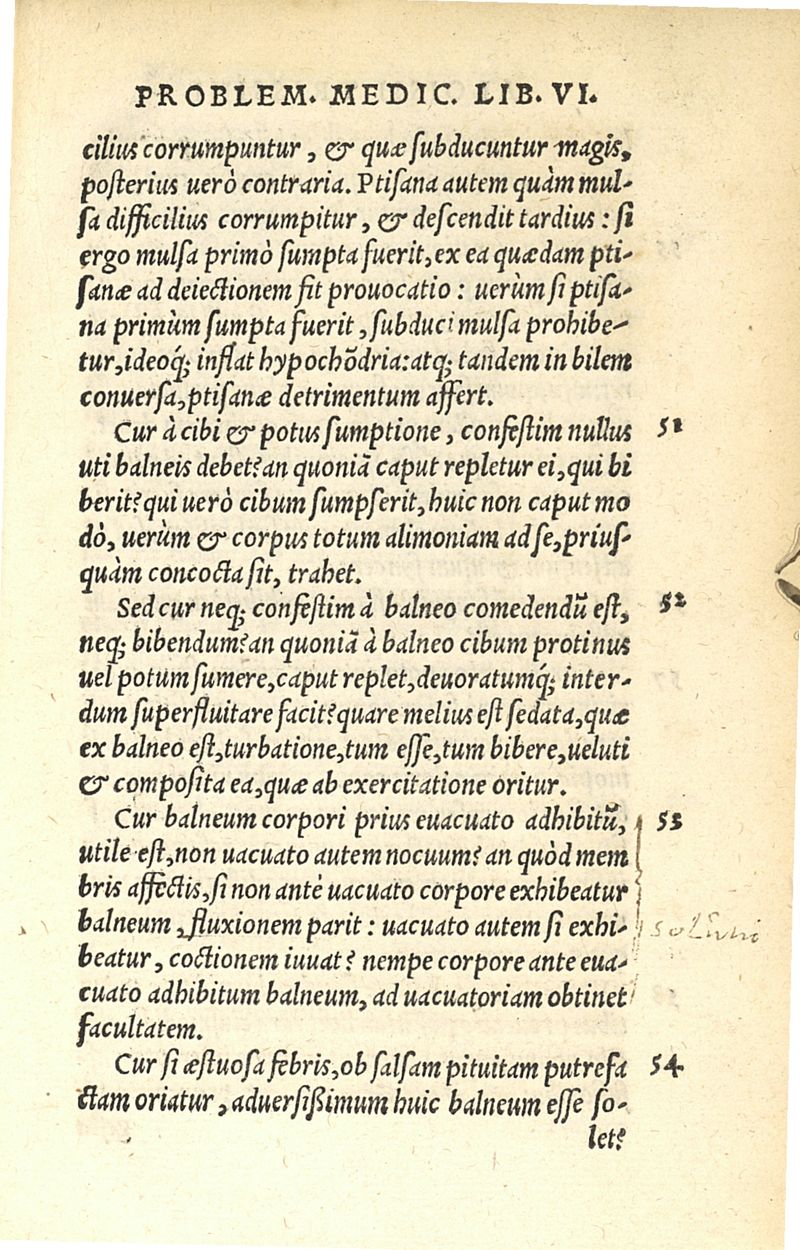 PROBLEM. MEDIC. LIB. VI.
cilius corrumpuntur, & quæ ſubducuntur magis,
poſterius uerò contraria. Ptiſana autem quàm mul-
ſa difficilius corrumpitur, & deſcendit tardius: ſi
ergo mulſa primò ſumpta fuerit, ex ea quædam pti-
ſanæ ad deiectionem fit prouocatio: uerùm ſi ptiſa-
na primùm ſumpta fuerit, ſubduci mulſa prohibe-
tur, ideoq́; inflat hypochõdria: atq; tandem in bilem
conuerſa, ptiſanæ detrimentum affert.
Cur à cibi & potus ſumptione, confeſtim nullus 51
uti balneis debet? an quoniã caput repletur ei, qui bi
berit? qui uerò cibum ſumpſerit, huic non caput mo
dò, uerùm & corpus totum alimoniam ad ſe, priuſ-
quàm concocta ſit, trahet.
Sed cur neq; confeſtim à balneo comedendũ eſt, 52
neq; bibendum? an quoniã à balneo cibum protinus
uel potum ſumere, caput replet, deuoratumq́; inter-
dum ſuperfluitare facit? quare melius eſt ſedata, quæ
ex balneo eſt, turbatione, tum eſſe, tum bibere, ueluti
& compoſita ea, quæ ab exercitatione oritur.
Cur balneum corpori prius euacuato adhibitũ, 53
utile eſt, non uacuato autem nocuum? an quòd mem
bris affectis, ſi non antè uacuato corpore exhibeatur
balneum, fluxionem parit: uacuato autem ſi exhi-
beatur, coctionem iuuat? nempe corpore ante eua-
cuato adhibitum balneum, ad uacuatoriam obtinet
facultatem.
Cur ſi æſtuoſa febris, ob ſalſam pituitam putrefa 54
ctam oriatur, aduerſißimum huic balneum eſſe ſo-
let?